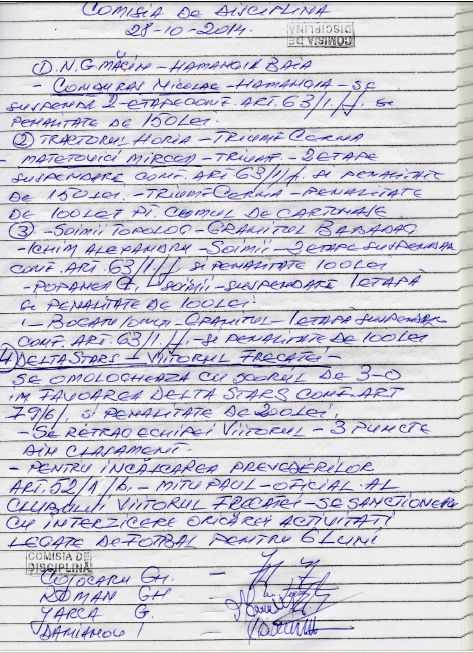 COMISIA DE DISCIPLINA
28-10-2014.
COMISIA DE
DISCIPLINA
① D.N.G. MĂCIN - HAMANGIA BAIA
- CONDURAS NICOLAE - HAMANGIA - SE
SUSPENDA 2-ETAPE CONF. ART. 63/1/f. SI
PENALITATE DE 150 LEI.
② TRACTORUL HORIA - TRIUMF CERNA
- MATETOVICI MIRCEA - TRIUMF. - 2 ETAPE
SUSPENDARE CONF. ART 63/1/f. SI PENALITATE
DE 150 LEI. - TRIUMF CERNA - PENALITATE
DE 100 LEI PT. CUMUL DE CARTONASE
③ - SOIMII TOPOLOG - GRANITUL BABADAG
- ICHIM ALEXANDRU - SOIMII - 2 ETAPE SUSPENDARE
CONF. ART. 63/1/f, SI PENALITATE 100 LEI
- POPANEA G. SOIMII - SUSPENDARE 1 ETAPĂ
SI PENALITATE DE 100 LEI.
- BOGATU IONUT - GRANITUL - 1 ETAPĂ SUSPENDARE
CONF. ART. 63/1/f. - SI PENALITATE DE 100 LEI
④ DELTA STARS - VIITORUL FRECATEI -
SE OMOLOGHEAZĂ CU SCORUL DE 3-0
IN FAVOAREA DELTA STARS CONF. ART
79/6/. SI PENALITATE DE 200 LEI.
- SE RETRAG ECHIPEI VIITORUL - 3 PUNCTE
DIN CLASAMENT.
- PENTRU INCĂLCAREA PREVEDERILOR
ART. 52/1/b. - MITU PAUL - OFICIAL AL
CLUBULUI VIITORUL FRECATEI - SE SANCTIONEAZĂ
CU INTERZICERE ORICĂREI ACTIVITATI
LEGATE DE FOTBAL PENTRU 6 LUNI
COMISIA DE
DISCIPLINA
COJOCARU GH. -
ROMAN GH -
IARCA G.
DAMIANOV I -